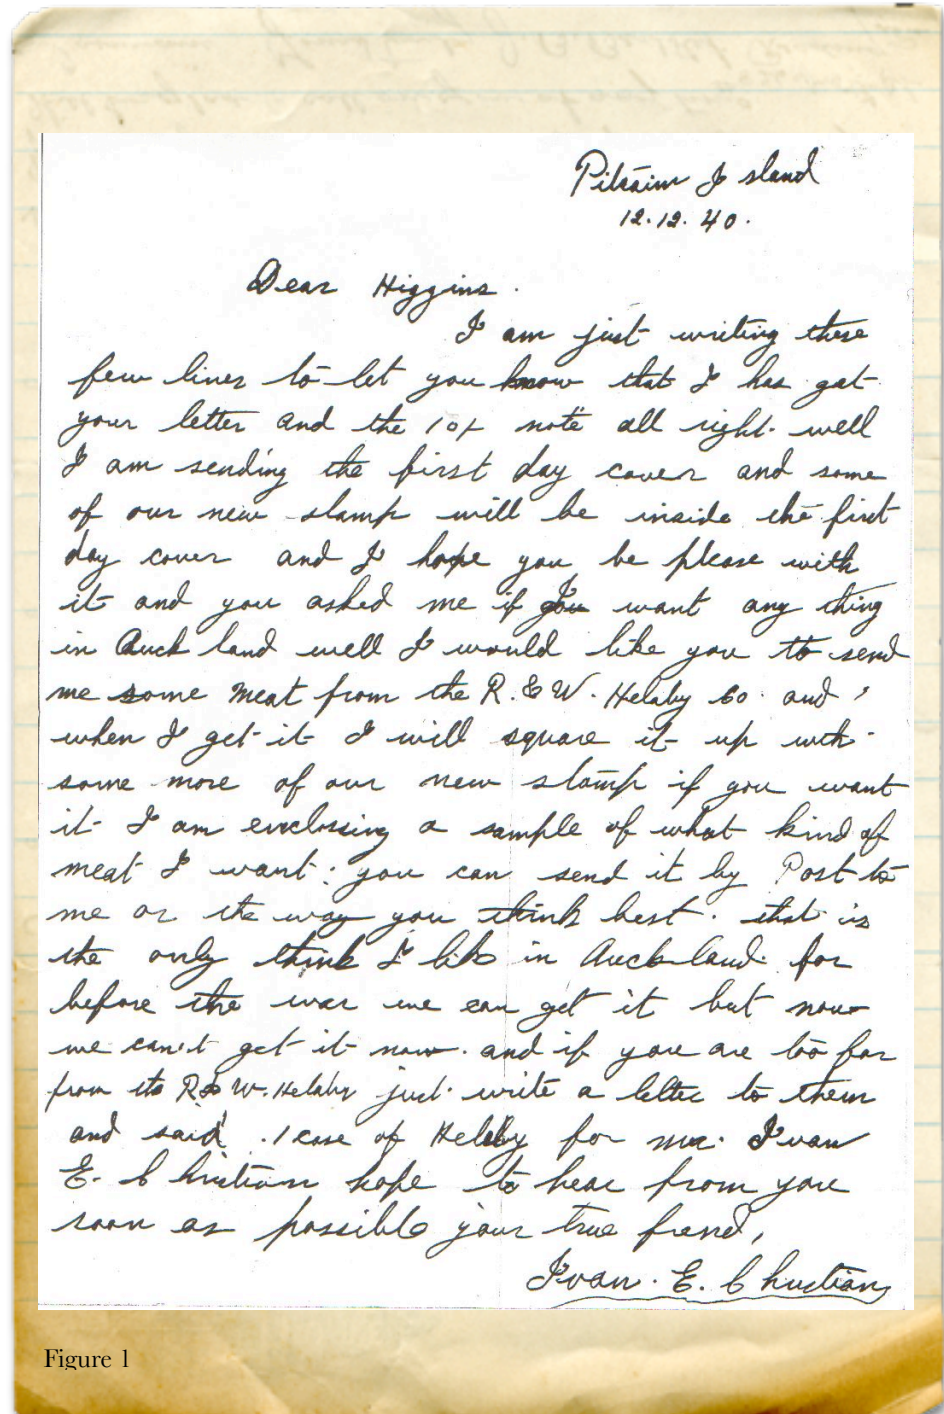 Pitcairn Island
12.12.40.
Dear Higgins.
I am just writing these
few lines to let you know that I has got
your letter and the 10/- note all right. well
I am sending the first day cover and some
of our new stamp will be inside the first
day cover and I hope you be please with
it and you asked me if I want any thing
in Auck land well I would like you to send
me some meat from the R. & W. Hellaby Co. and,
when I get it I will square it up with
some more of our new stamp if you want
it. I am enclossing a sample of what kind of
meat I want: you can send it by Post to
me or the way you think best. that is
the only think I like in Auckland. for
before the war we can get it but now
we can't get it now. and if you are too far
from R & W. Hellaby just write a letter to them
and said. 1 case of Hellaby for mr. Ivan
E. Christian hope to hear from you
soon as possible your true friend,
Ivan. E. Christian
Figure 1